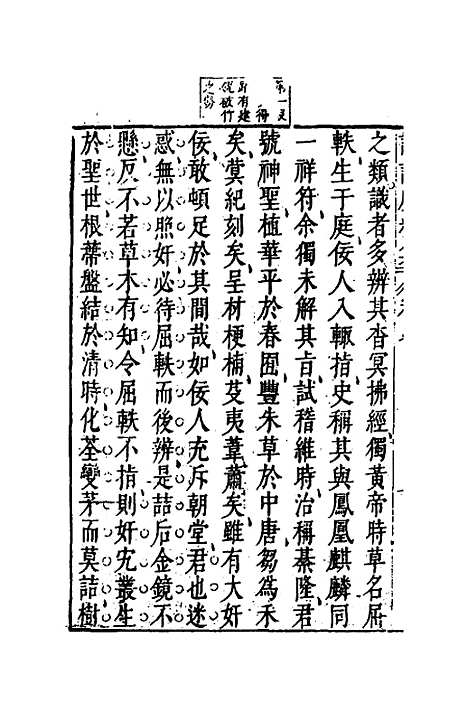 第一
得
有建
之勢
之類識者多辨其杳冥拂經獨黃帝時草名屈
軼生于庭佞人入輙指史稱其與鳳凰麒麟同
一祥符余獨未解其旨試稽維時治稱綦隆君
號神聖植華平於春囿豐朱草於中唐芻為禾
矣蓂紀刻矣呈材梗楠芟夷葦蕭矣雖有大奸
佞敢頓足於其間哉如佞人充斥朝堂君也迷
惑無以照奸必待屈軼而後辨是詰后金鏡不
懸反不若草木有知令屈軼不指則奸宄叢生
於聖世根蒂盤結於清時化荃變茅而莫詰樹